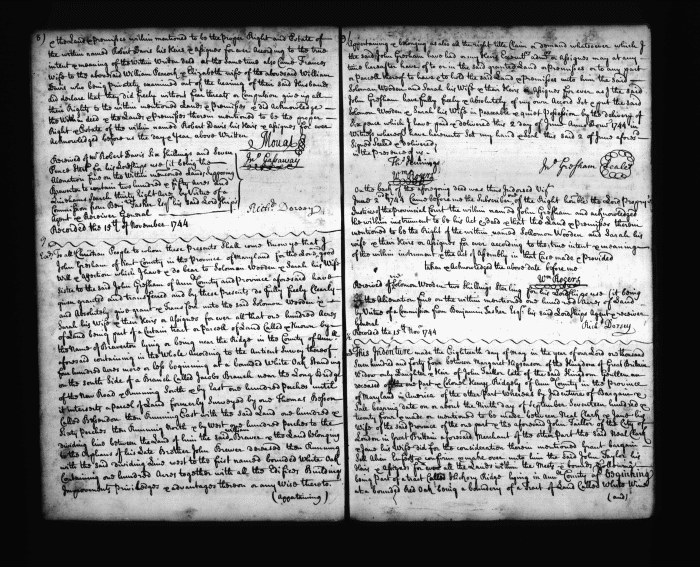 & the Land & Premisses within mentioned to be the proper Right and Estate of
the within named Robert Davis his Heirs & Assigns for ever According to the true
intent & meaning of the Within Written deed at the same time also Came Frances
Wife to the aforesaid William & Elizabeth wife of the aforesaid William
Davis who being Privately examined out of the hearing of their said Husbands
did declare that they did freely without fear threats or Compulsion give up all
their Rights to the within mentioned Lands & Premisses & did acknowledge
the Within deed & the Lands & Premisses therein mentioned to be the proper
Right & Estate of the within named Robert Davis his heirs & assigns for ever
Acknowledged before us the day & Year above Written
Mouat
Received of Mr Robert Davis Six Shillings and Seven
Pence Sterl for his Lordships use it being the
Alienation fine on the Within mentioned Lands Supposing
Beaverton to contain two hundred & fifty Acres and
Search thirty Eight Acres by Virtue of a
Commission from Benj Tasker Esqr his said Lordships
Agent & Receiver General
Jno Gassaway
Richd Dorsey
Recorded the 15th of November 1744
To all Christian People to whom these Presents shall Come know ye that I
John Gresham of Kent County in the Province of Maryland for the Love, good
Will & Affection which I have & do bear to Solomon Wooden & Sarah his Wife
Sister to the said John Gresham of Ann County and Province aforesaid have
given granted and transferred and by these Presents do fully freely Clearly
and Absolutely give grant & Transfer unto the said Solomon Wooden &
Sarah his Wife & their Heirs & Assigns for ever all that one hundred Acres
of Land being part of a Certain tract or Parcell of Land Called & Known by
the Name of Beaverton lying & being near the Ridge in the County of Ann
aforesaid containing in the Whole According to the Antient Survey thereof
four hundred Acres more or less beginning at a bounded White Oak Standing
on the South Side of a Branch Called Jacobs Branch near the Long Bridge
of the New Road & Running South & by East one hundred Perches until
it intersects a parcel of Land formerly Surveyed by one Thomas Besson
Called Bessondon then Running East with the said Land one hundred &
Sixty Perches then Running North & by West one hundred Perches to the
dividing line between the Land of him the said Brewer & the Land belonging
to the Orphans of his Late Brother John Brewer deceased then Running
with the said dividing Line West to the first named bounded White Oak
Containing one hundred Acres together with all the Edifices Building
Improvements Priviledges & advantages thereon or any Wise thereto
(Appertaining)
Appertaining & belonging as also all the right title Claim or demand whatsoever which I
the said John Gresham have had or my Heirs or Assigns may at any
time hereafter have of to or in the said granted Land & Premisses or to any part
or Parcell thereof to have & to hold the said Land & Premisses unto him the said
Solomon Wooden and Sarah his Wife & their Heirs & Assigns for ever And I the said
John Gresham have fully freely & Absolutely of my own Accord Set & put the said
Solomon Wooden & Sarah his Wife in Peaceable & quiet Possession by the delivery of
Six pence which I have paid & delivered this 2 day of June Anno Dom 1744 In
Witness whereof have hereunto Set my hand & Seal this said 2 of June aforesd
Signed Sealed & delivered
In the presence of us
Wm Rogers
Jno Gresham Sealed
On the back of the foregoing deed was thus Indorsed Vizt
June 2 1744 Came before me the Subscriber of the Right honble the Lord Propry
Justices of the Provincial Court the within named John Gresham and acknowledged
the within instrument to be his Act & deed & that the Land & Premisses therein
mentioned to be the Right of the within named Solomon Wooden and Sarah his
wife & their Heirs & Assigns for ever according to the true intent & meaning
of the within instrument & the Act of Assembly in that Case made & Provided
taken & Acknowledged the above date before me
Wm Rogers
Received of Solomon Wooden two Shillings Sterling for his Lordships use it being
the Alienation Fine on the within mentioned one hundred Acres of Land
by Virtue of a Commission from Benjamin Tasker Esqr his said Lordships Agent & receiver
General
Richd Dorsey
Recorded the 15th Novr 1744
This Indenture made the Eighteenth day of May in the year of our Lord one thousand
Seven hundred and forty four between Margaret in the Kingdom of Great Britain
Widow only Daughter & Heir of John Taillor late of the said Kingdom Gentleman
deceased of the one part & Colonel Henry Ridgely of Ann County in the Province
of Maryland in America of the other Part Whereas by Indenture of Bargain &
Sale bearing date on or about the Ninth day of September Seventeen hundred &
four made or mentioned to be made between Neal Clark & Jane his
Wife of the said Province of the one part & the aforesaid John Taillor of the City of
London in Great Britain aforesaid Merchant of the other part the said Neal Clark
& Jane his Wife did for the consideration therein mentioned grant Bargain
Sell Alien Enfeoff & Confirm & make over unto him the said John Taylor his
Heirs & Assigns for ever all the Lands within the Metes & bounds following
being Part of a tract Called Hickory Ridge lying in Ann County & Beginning
at a bounded Red Oak being a boundary of a Tract of Land Called White Wine
(and)